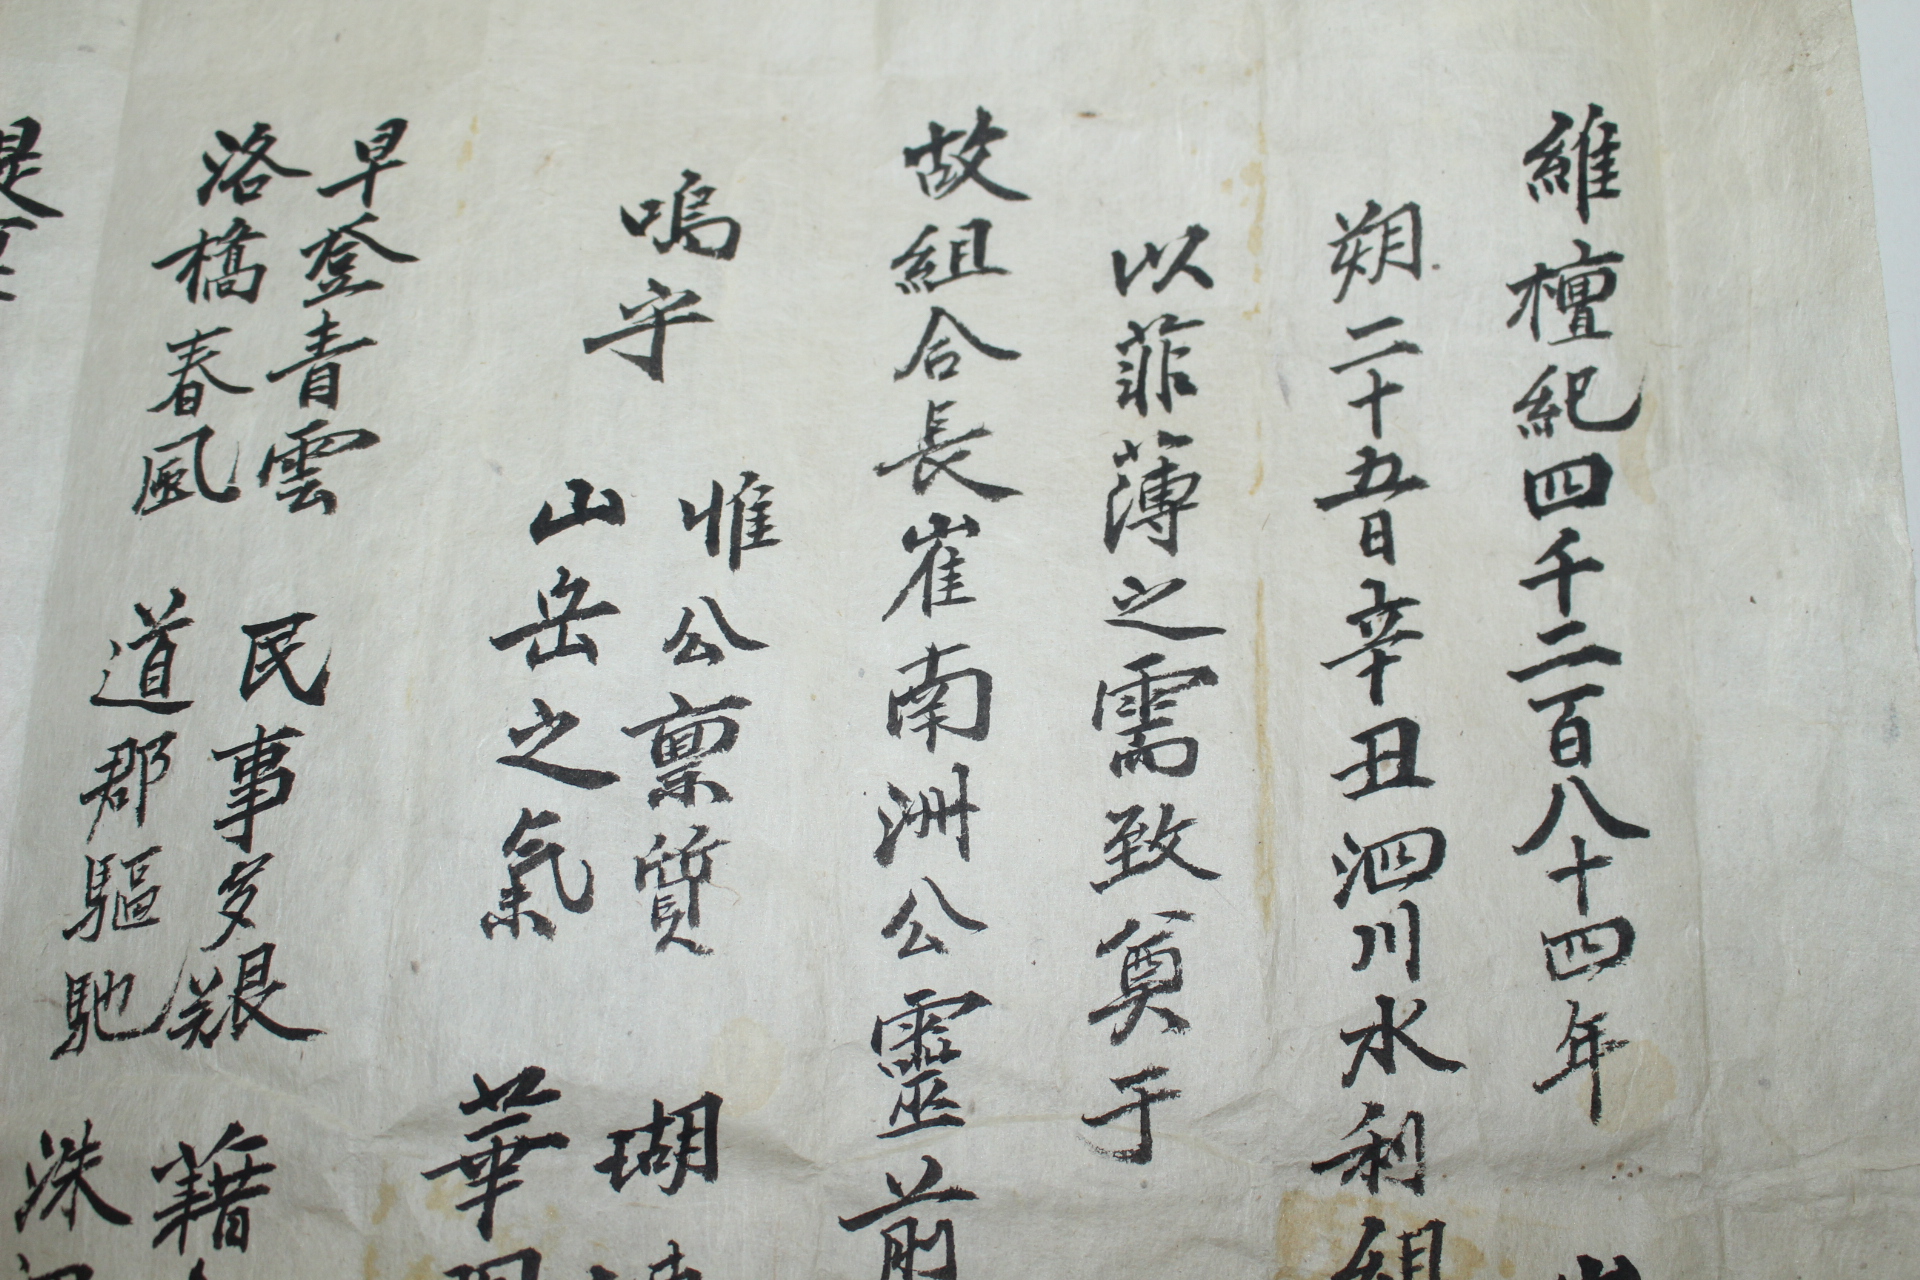 維檀紀四千二百八十四年
朔二十五日辛丑泗川水利組
以菲薄之需致奠于
故組合長崔南洲公靈前
嗚乎
惟公稟質 瑚
山岳之氣 華
早登青雲 民事多艱 藉
洛橋春風 道郡驅馳 洙